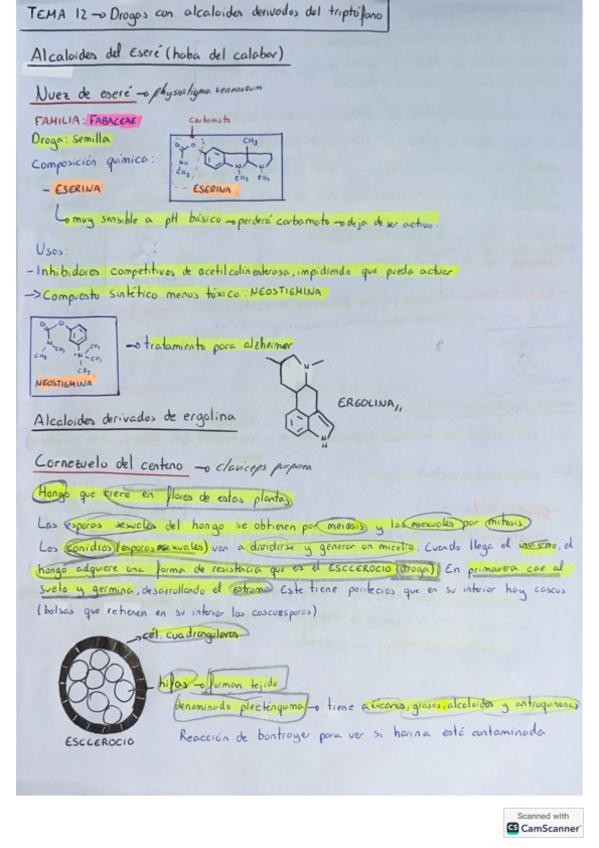 TEMA 12 → Drogas con alcaloides derivados del triptófano
Alcaloides del Eseré (haba del calabar)
Nuez de eseré → physostigma venenosum
FAMILIA: FABACEAE
Carbamato
Droga: Semilla
Composición química:
- ESERINA
ESERINA
muy sensible a pH básico → perderá carbamato → deja de ser activo.
Usos:
- Inhibidores competitivos de acetilcolinesterasa, impidiendo que pueda actuar
→ Compuesto sintético menos tóxico: NEOSTIGMINA
→ tratamiento para alzheimer
NEOSTIGMINA
ERGOLINA
Alcaloides derivados de ergolina
Cornezuelo del centeno → claviceps purpurea
Hongo que crece en flores de estas plantas
Las esporas sexuales del hongo se obtienen por meiosis y las asexuales por mitosis
Los conidios (esporas asexuales) van a dividirse y generar un micelio. Cuando llega el invierno, el
hongo adquiere una forma de resistencia que es el ESCCEROCIO (droga). En primavera cae al
suelo y germina, desarrollando el estroma. Este tiene peritecios que en su interior hay
(bolsas que retienen en su interior las ascosporas)
→ cél. cuadrangulares
hifas → forman tejido
denominado plecténquima → tiene azúcares, grasas, alcaloides y antraquinonas
ESCLEROCIO
Reacción de bontrager para ver si harina está contaminada
Scanned with
CS CamScanner